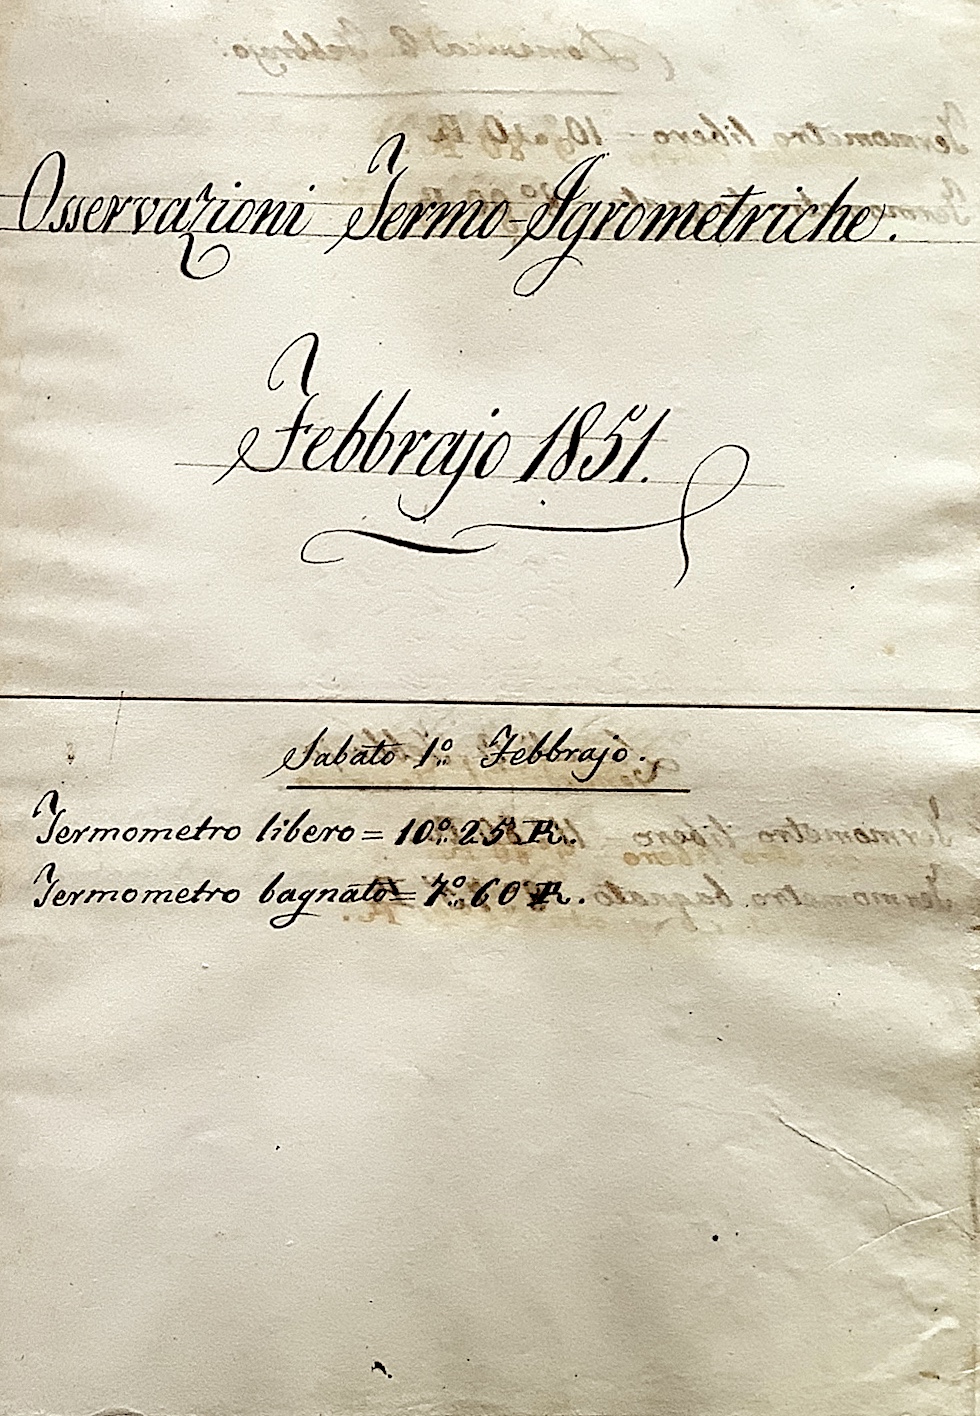 Osservazioni Termo-Igrometriche.
Febbrajo 1851.
Sabato 1.º Febbrajo.
Termometro libero = 10.º 25 R.
Termometro bagnato = 7.º 60 R.